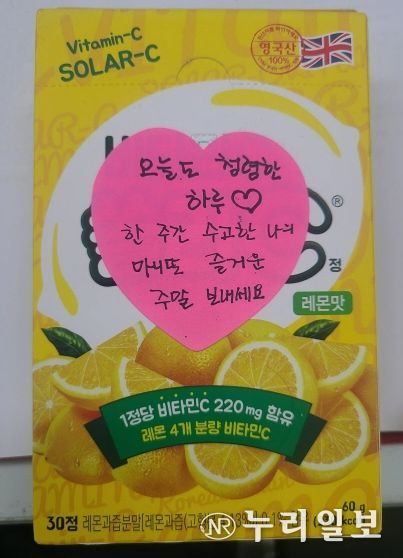 Vitamin-C
SOLAR-C
영국산
100%
오늘도 청렴한
하루♡
한 주간 수고한 나의
마니또 즐거운
주말 보내세요
®
정
레몬맛
1정당 비타민C 220 mg 함유
레몬 4개 분량 비타민C
60 g
30정 레몬과즙분말[레몬과즙(고형
NR 누리일보